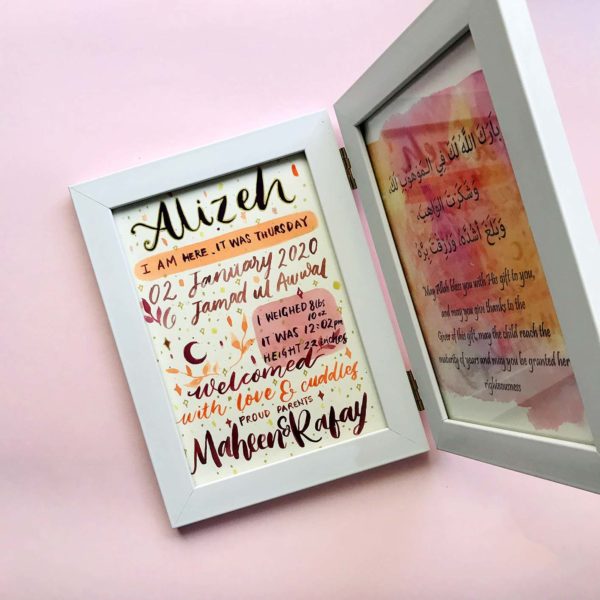 Alizeh
I AM HERE. IT WAS THURSDAY
02 January 2020
6 Jamad ul Awwal
I WEIGHED 8lbs
10oz
IT WAS 12:02pm
HEIGHT 22 inches
welcomed
with love & cuddles
PROUD PARENTS
Maheen & Rafay
بَارَكَ اللَّهُ لَكَ فِي الْمَوْهُوبِ لَكَ،
وَشَكَرْتَ الْوَاهِبَ،
وَبَلَغَ أَشُدَّهُ، وَرُزِقْتَ بِرَّهُ
May Allah bless you with His gift to you,
and may you give thanks to the
Giver of this gift, may the child reach the
maturity of years and may you be granted her
righteousness